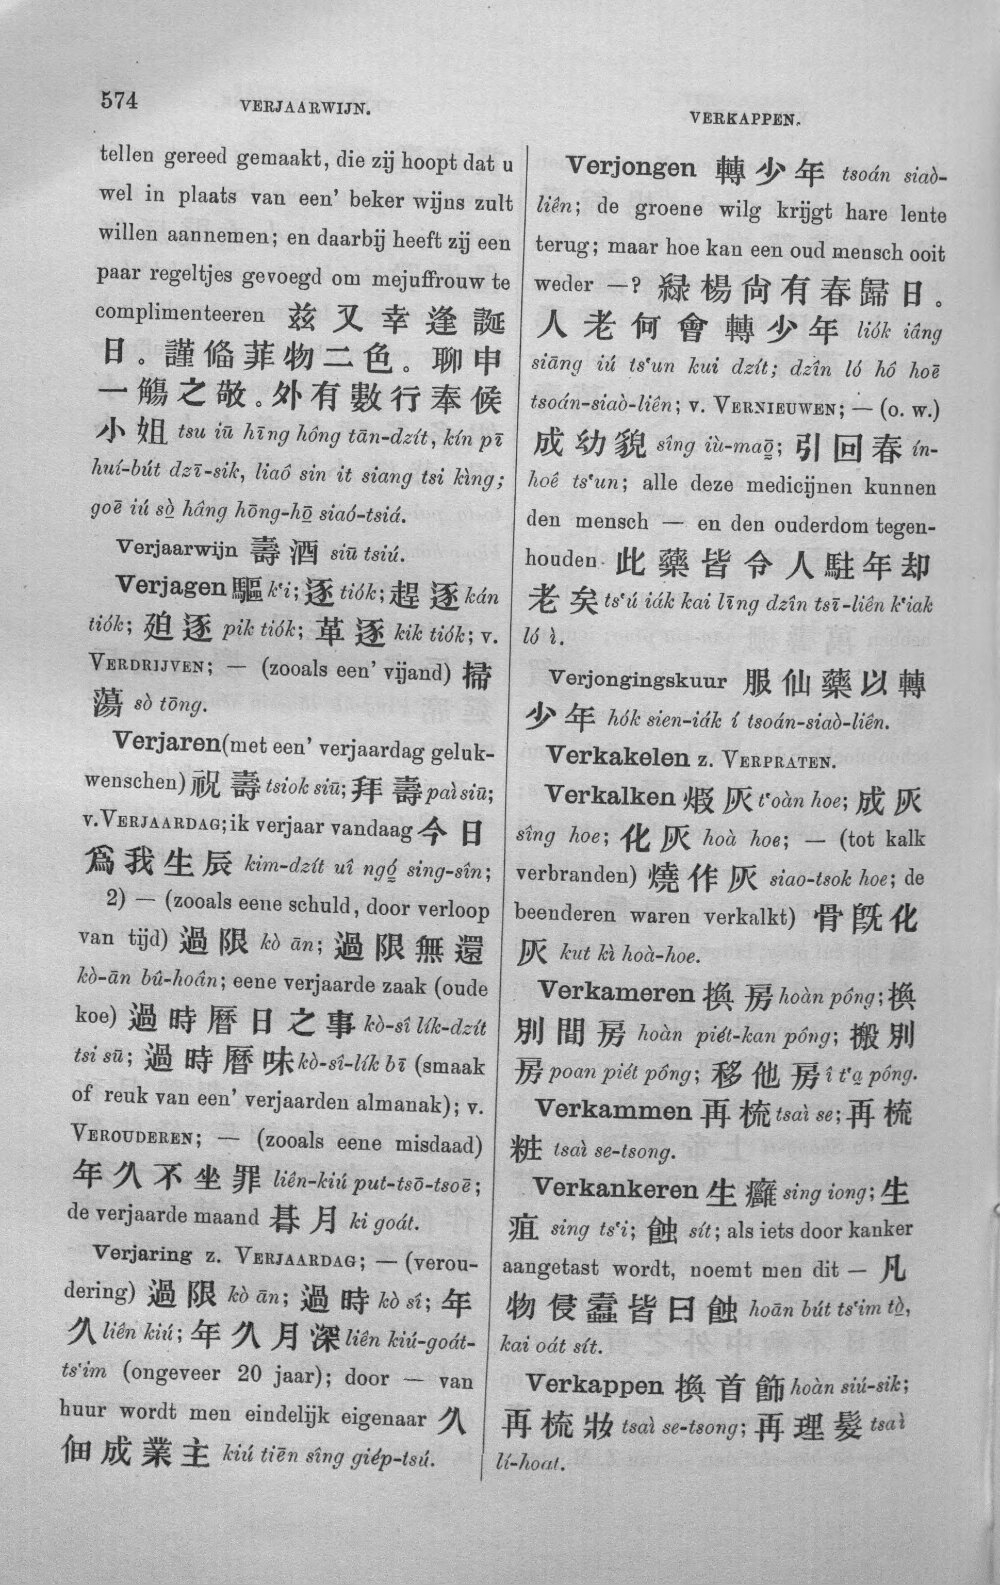 574
VERJAARWIJN.
VERKAPPEN.
tellen gereed gemaakt, die zij hoopt dat u
wel in plaats van een' beker wijns zult
willen aannemen; en daarbij heeft zij een
paar regeltjes gevoegd om mejuffrouw te
complimenteeren 茲又幸逢誕
日。謹俻菲物二色。聊申
一觴之敬。外有數行奉候
小姐 tsu iū hīng hông tān-dzít, kín pī
huí-bút dzī-sik, liaô sin it siang tsi kìng;
goē iú sò̤ hâng hōng-hō̤ siaó-tsiá.
Verjaarwijn 壽酒 siū tsiú.
Verjagen 驅 k‘i; 逐 tiók; 趕逐 kán
tiók; 廹逐 pik tiók; 革逐 kik tiók; v.
VERDRIJVEN; — (zooals een' vijand) 掃
蕩 sò tōng.
Verjaren (met een' verjaardag geluk-
wenschen) 祝壽 tsiok siū; 拜壽 paì siū;
v. VERJAARDAG; ik verjaar vandaag 今日
爲我生辰 kim-dzít uî ngó̤ sing-sîn;
2) — (zooals eene schuld, door verloop
van tijd) 過限 kò ān; 過限無還
kò-ān bû-hoân; eene verjaarde zaak (oude
koe) 過時曆日之事 kò-sî lík-dzít
tsi sū; 過時曆味 kò-sî-lík bī (smaak
of reuk van een' verjaarden almanak); v.
VEROUDEREN; — (zooals eene misdaad)
年久不坐罪 liên-kiú put-tsō-tsoē;
de verjaarde maand 朞月 ki goát.
Verjaring z. VERJAARDAG; — (verou-
dering) 過限 kò ān; 過時 kò sî; 年
久 liên kiú; 年久月深 liên kiú-goát-
ts‘im (ongeveer 20 jaar); door — van
huur wordt men eindelijk eigenaar 久
佃成業主 kiú tiēn sîng giép-tsú.
Verjongen 轉少年 tsoán siaò-
liên; de groene wilg krijgt hare lente
terug; maar hoe kan een oud mensch ooit
weder —? 綠楊尙有春歸日。
人老何會轉少年 liók iâng
siāng iú ts‘un kui dzít; dzîn ló hô hoē
tsoán-siaò-liên; v. VERNIEUWEN; — (o. w.)
成幼貌 sîng iù-maō̤; 引回春 ín-
hoê ts‘un; alle deze medicijnen kunnen
den mensch — en den ouderdom tegen-
houden 此藥皆令人駐年却
老矣 ts‘ú iák kai līng dzîn tsī-liên k‘iak
ló ì.
Verjongingskuur 服仙藥以轉
少年 hók sien-iák í tsoán-siaò-liên.
Verkakelen z. VERPRATEN.
Verkalken 煅灰 t‘oàn hoe; 成灰
sîng hoe; 化灰 hoà hoe; — (tot kalk
verbranden) 燒作灰 siao-tsok hoe; de
beenderen waren verkalkt) 骨旣化
灰 kut kì hoà-hoe.
Verkameren 換房 hoàn pông; 換
別間房 hoàn piét-kan pông; 搬別
房 poan piét pông; 移他房 î t‘a̤ pông.
Verkammen 再梳 tsaì se; 再梳
粧 tsaì se-tsong.
Verkankeren 生癰 sing iong; 生
疽 sing ts‘i; 蝕 sít; als iets door kanker
aangetast wordt, noemt men dit — 凡
物侵蠹皆曰蝕 hoān bút ts‘im tò̤,
kai oát sít.
Verkappen 換首飾 hoàn siú-sik;
再梳妝 tsaì se-tsong; 再理髮 tsaì
lí-hoat.